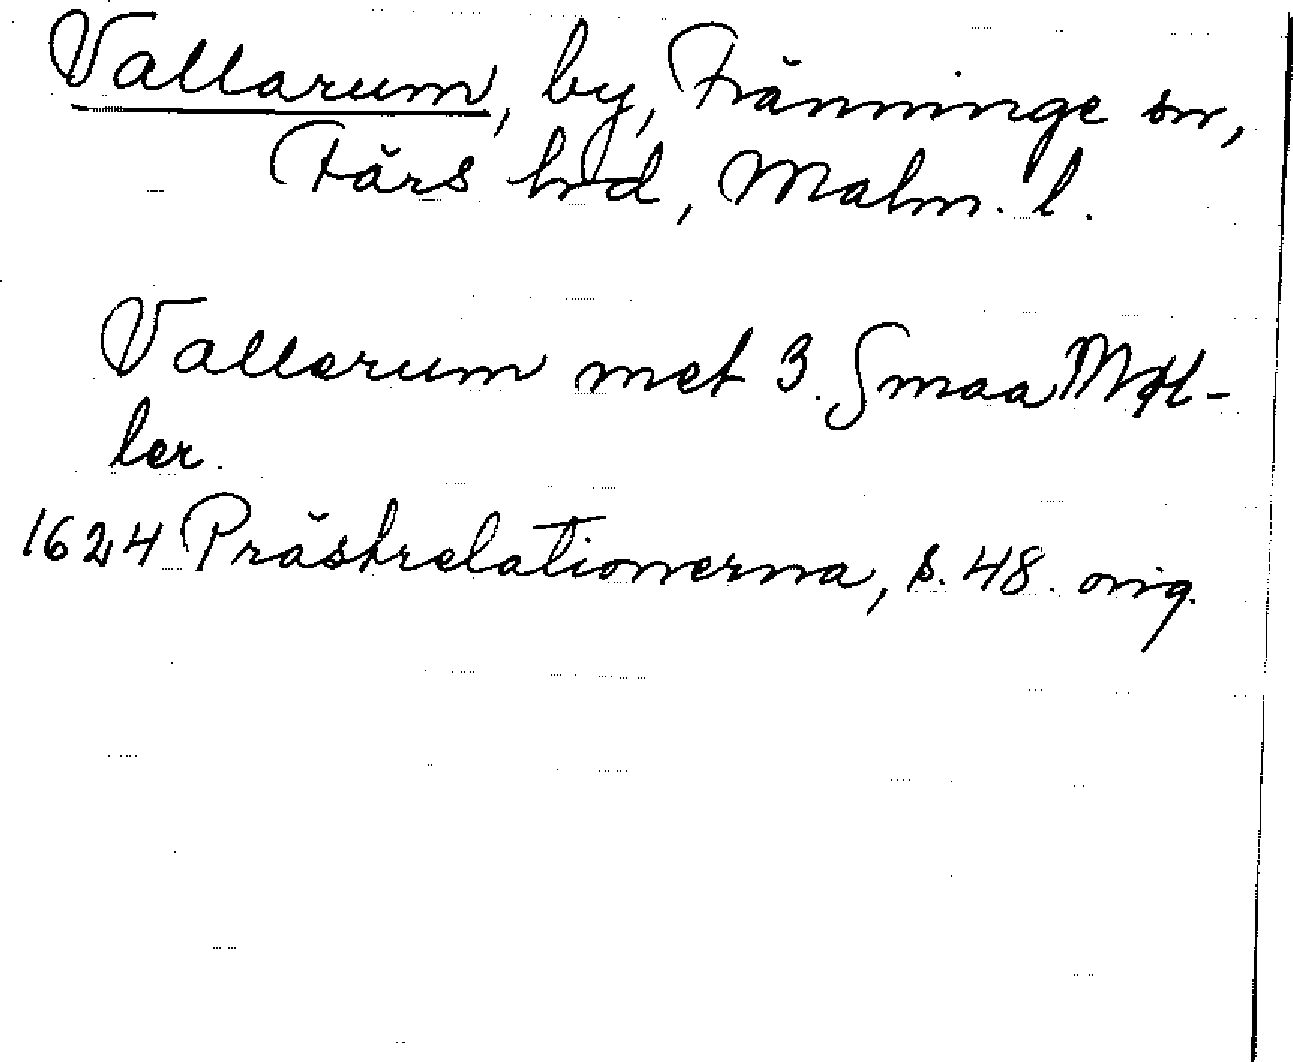 Vallarum, by, Fränninge sn,
Färs hd, Malm. l.
Vallerum met 3. Smaa Møl-
ler.
1624 Prästrelationerna, s. 48. orig.